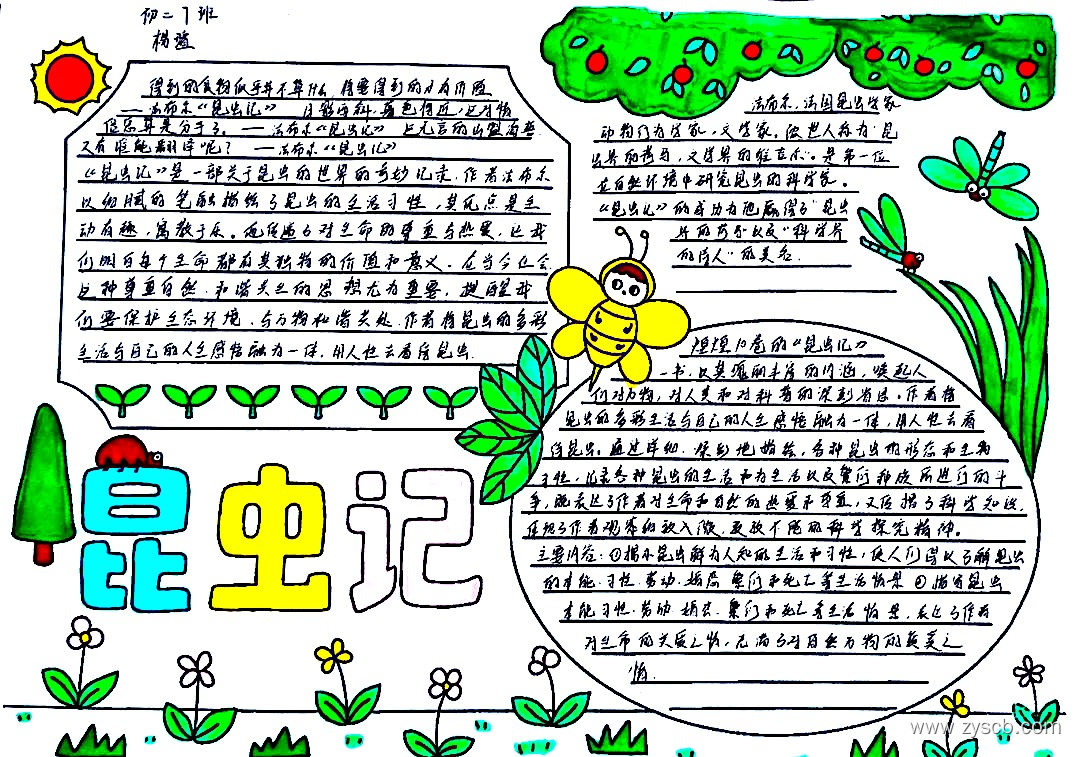 初二7班
得到的食物似乎并不算什么,将要得到的才有价值
——法布尔《昆虫记》
——法布尔《昆虫记》
又有谁能翻译呢? ——法布尔《昆虫记》
《昆虫记》是一部关于昆虫的世界的奇妙记录.作者法布尔
以细腻的笔触描绘了昆虫的生活习性,其亮点是生
动有趣,寓教于乐。还传递了对生命的尊重与热爱,让我
们明白每个生命都有其独特的价值和意义.在当今社会
这种尊重自然.和谐共生的思想尤为重要,提醒我
们要保护生态环境,与万物和谐共处.作者将昆虫的多彩
生活与自己的人生感悟融为一体,用人性去看待昆虫.
昆虫记
法布尔,法国昆虫学家
动物行为学家,文学家。被世人称为"昆
虫界的荷马,文学界的维吉尔"。是第一位
在自然环境中研究昆虫的科学家。
《昆虫记》的成功为他赢得了"昆虫
界的荷马"以及"科学界
的诗人"的美名.
煌煌10卷的《昆虫记》
一书,以其瑰丽丰富的内涵,唤起人
们对万物,对人类和对科普的深刻省思。作者将
昆虫的多彩生活与自己的人生感悟融为一体,用人性去看
待昆虫。通过详细.深刻地描绘,各种昆虫的形态和生物
习性,记录各种昆虫的生活和为生活以及繁衍种族所进行的斗
争,既表达了作者对生命和自然的热爱和尊重,又传播了科学知识,
体现了作者观察细致入微,孜孜不倦的科学探究精神。
主要内容:①揭示昆虫鲜为人知的生活和习性,使人们得以了解昆虫
的本能.习性.劳动.婚恋.繁衍和死亡等生活情景 ②描写昆虫
本能.习性.劳动.婚恋.繁衍和死亡等生活情景,表达了作者
对生命的关爱之情,充满了对自然万物的赞美之
情.
www.zyscb.com